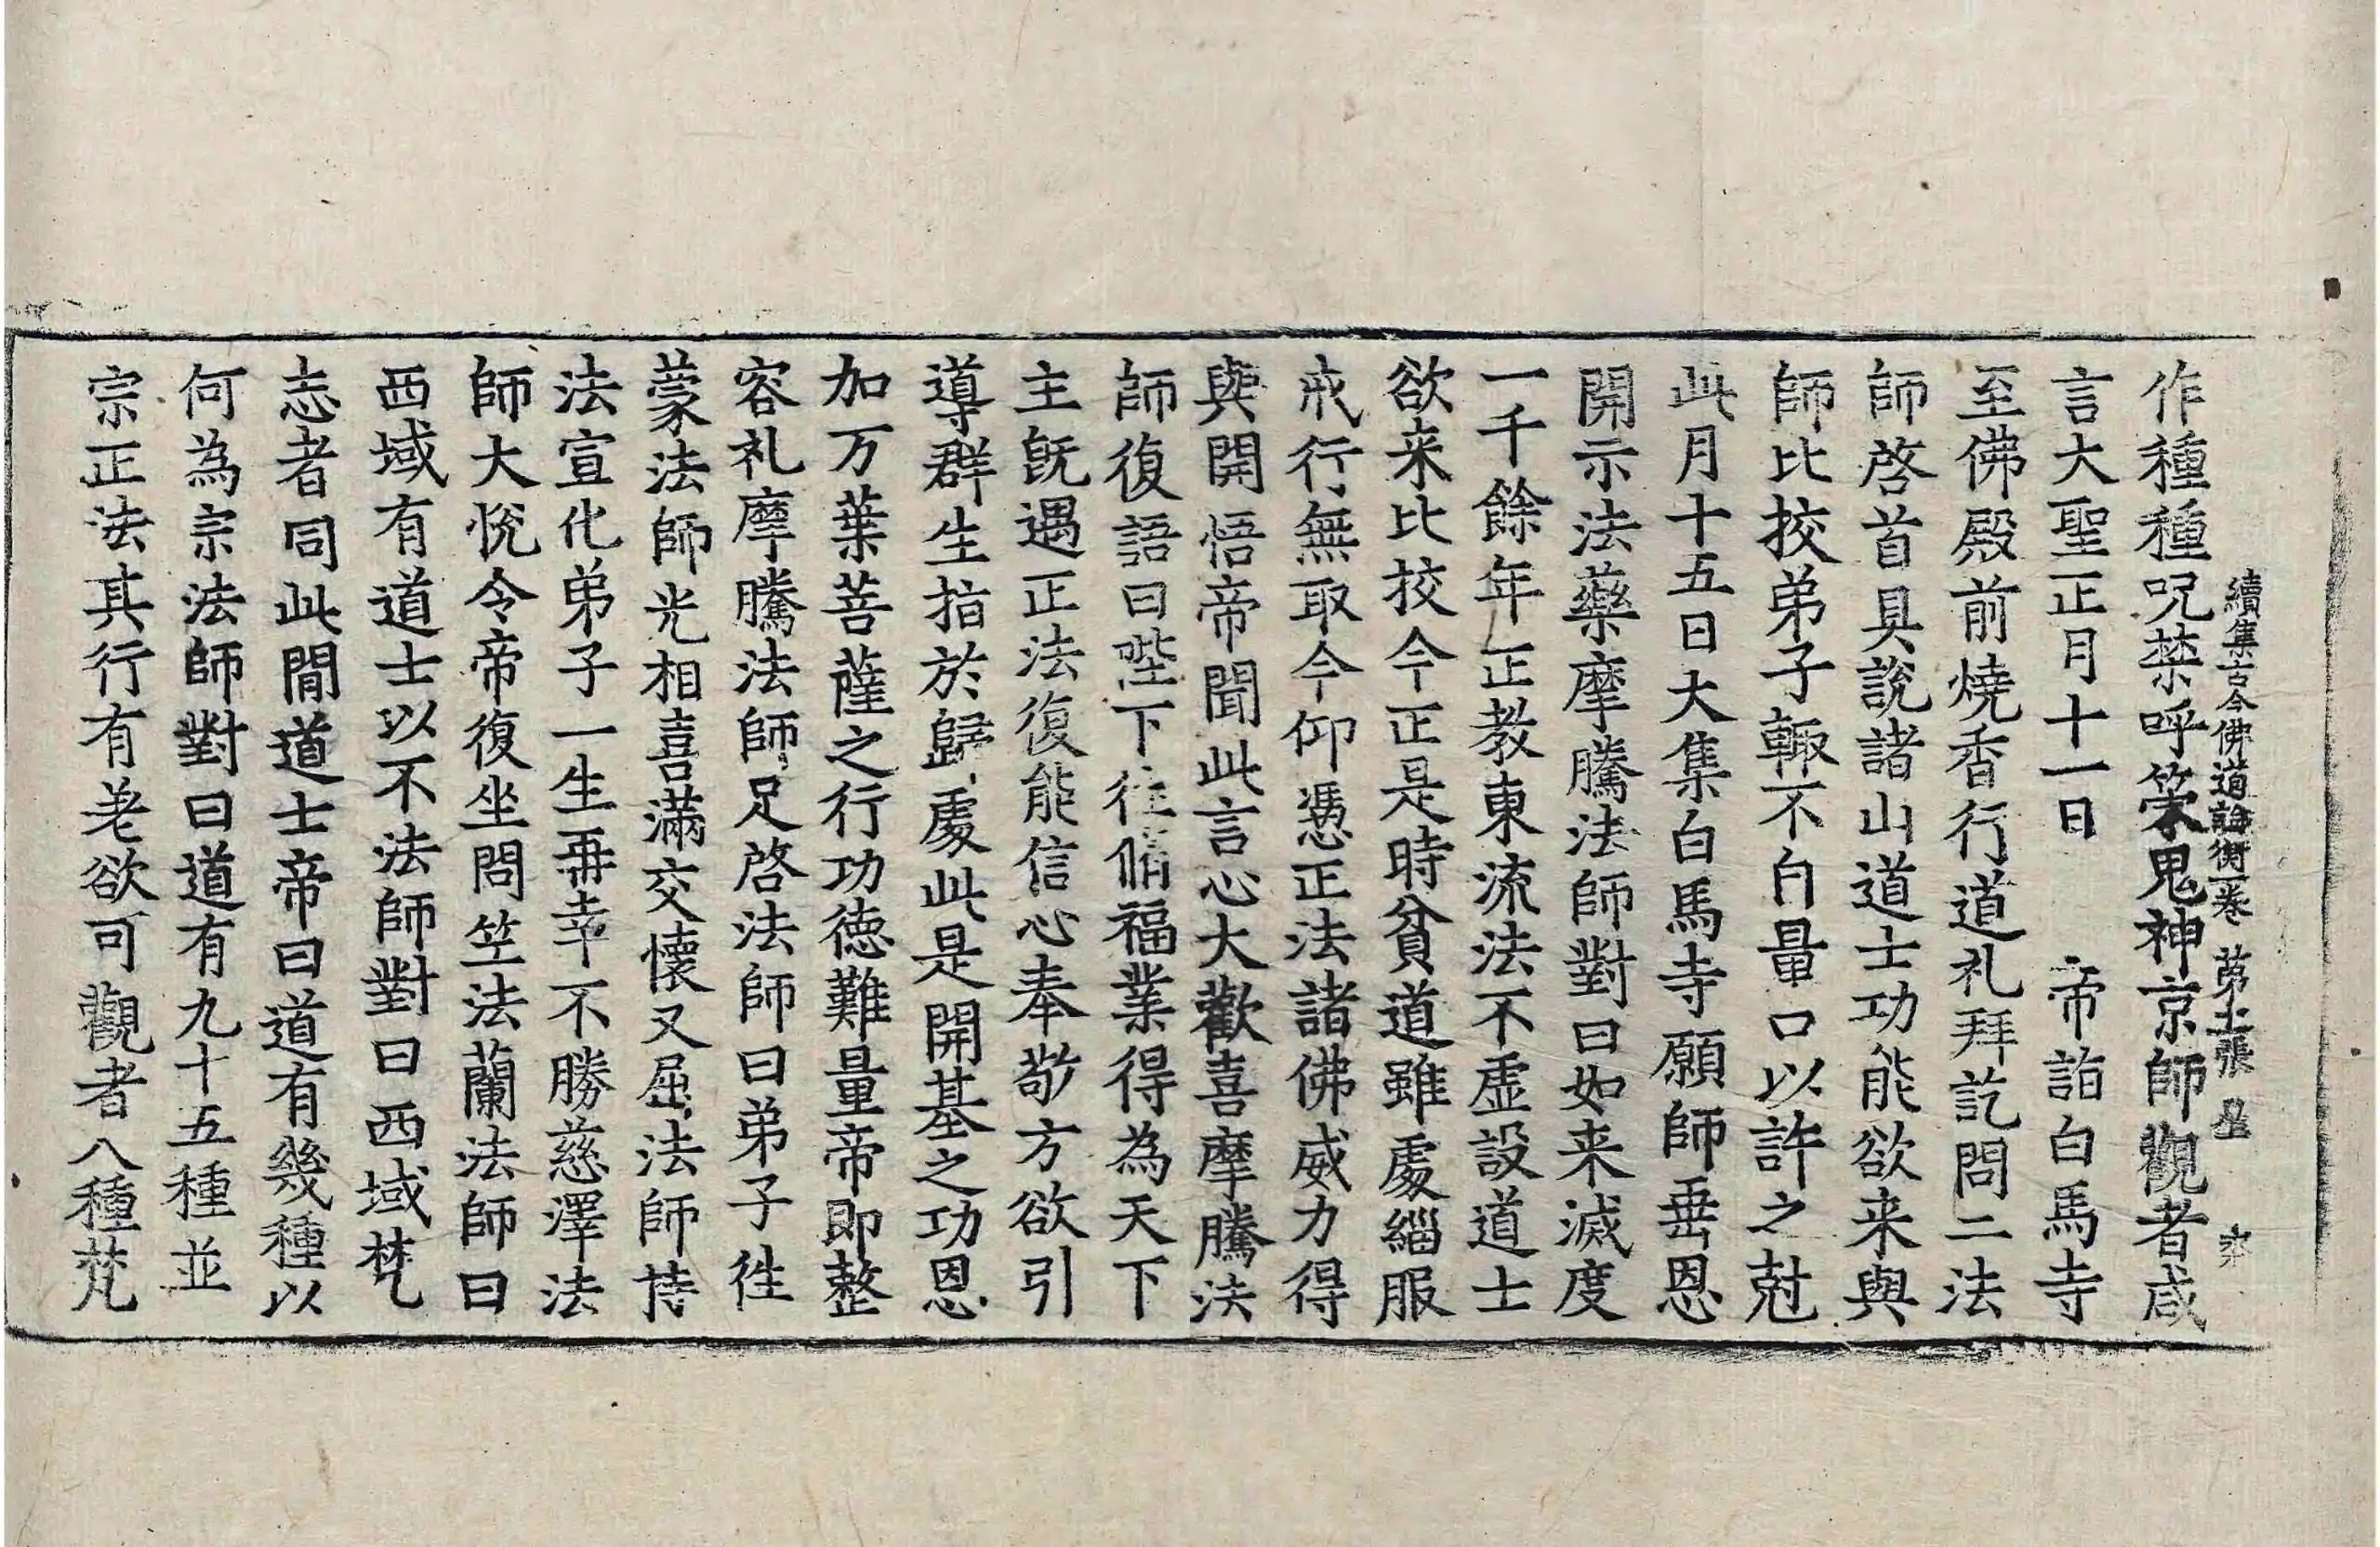 續集古今佛道論衡一卷 苐十二張 𡉄
作種種呪禁呼策鬼神京師觀者咸
言大聖正月十一日 帝詣白馬寺
至佛殿前燒香行道礼拜訖問二法
師啓首具說諸山道士功能欲来與
師比挍弟子輙不自量口以許之尅
此月十五日大集白馬寺願師垂恩
開示法藥摩騰法師對曰如来滅度
一千餘年正教東流法不虛設道士
欲来比挍今正是時貧道雖處緇服
戒行無取今仰憑正法諸佛威力得
與開悟帝聞此言心大歡喜摩騰法
師復語曰陛下往脩福業得為天下
主旣遇正法復能信心奉敬方欲引
導群生指於歸處此是開基之功恩
加万葉菩薩之行功德難量帝即整
容礼摩騰法師足啓法師曰弟子徃
蒙法師光相喜滿交懷又屈法師持
法宣化弟子一生再幸不勝慈澤法
師大悅令帝復坐問竺法蘭法師曰
西域有道士以不法師對曰西域梵
志者同此間道士帝曰道有幾種以
何為宗法師對曰道有九十五種並
宗正法其行有老欲可觀者八種梵